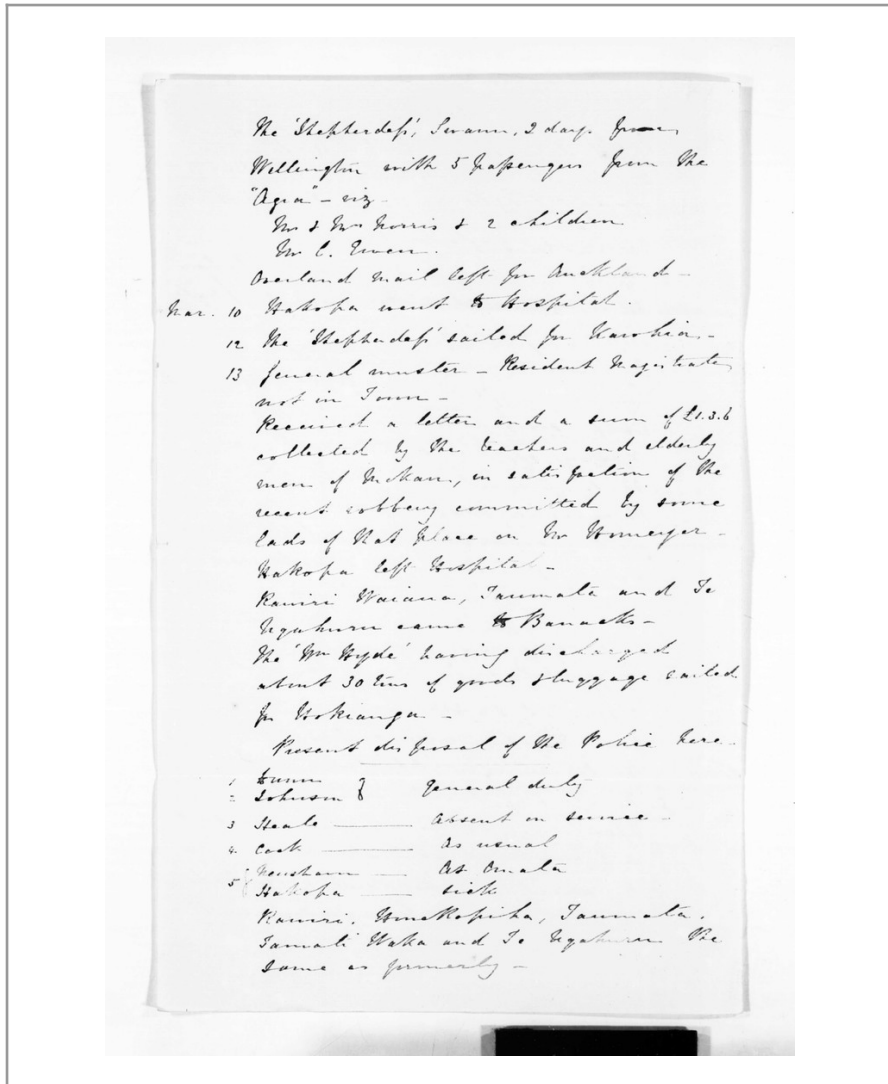 The 'Shepherdess', Swann, 2 days from
Wellington with 5 passengers from the
"Agra" - viz.
Mr & Mrs Norris & 2 children
Mr C. Ewen.
Overland Mail left for Auckland -
Mar. 10 Hakopa went to Hospital.
12 The 'Shepherdess' sailed for Kawhia -
13 General muster - Resident Magistrate
not in Town -
Received a letter and a sum of £1.3.6
collected by the teachers and elderly
men of Mokau, in satisfaction of the
recent robbery committed by some
lads of that place on Mr
Hakopa left Hospital -
Rawiri Waiaua, Taumata and Te
Ngahuru came to Barracks -
The 'Wm Hyde' having discharged
about 30 tons of goods & luggage sailed
for Hokianga -
Present disposal of the Police here -
1 Dunn
2 Johnson } General duty
3 Heale - Absent on service -
4 Cook - As usual
5 { - At Omata
Hakopa - sick
Rawiri, Taumata,
Tamati Waka and Te Ngahuru the
same as formerly -